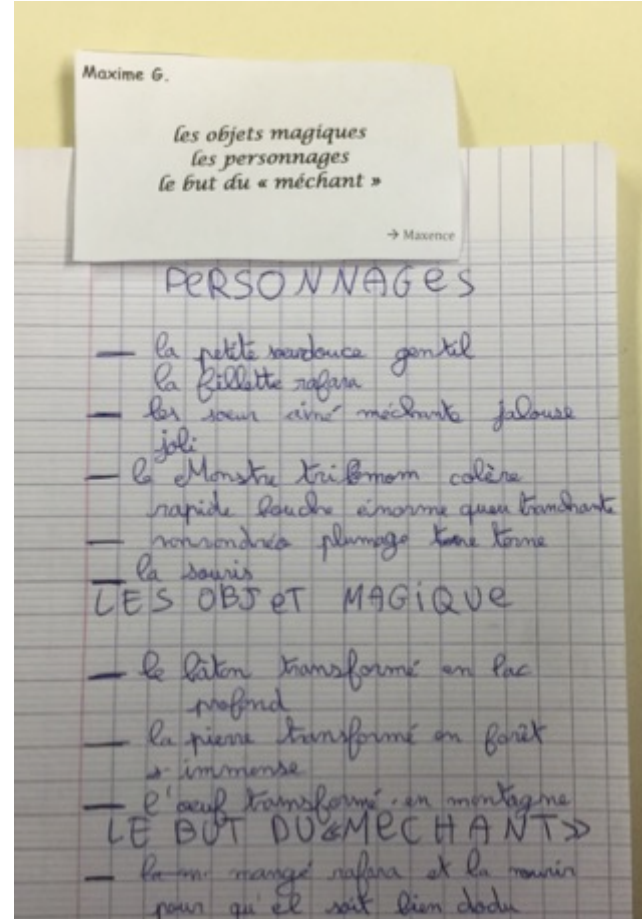 Maxime G.
les objets magiques
les personnages
le but du « méchant »
→ Maxence
PERSONNAGES
— la petite gentil
la fillette rafara
— les sœur aîné méchante jalouse
joli
— le Monstre colère
rapide énorme queu tranchante
— plumage terne
— la souris
LES OBJET MAGIQUE
— le bâton transformé en lac
profond
— la pierre transformé en forêt
immense
— l'œuf transformé en montagne
LE BUT DU «MECHANT»
— mangé rafara et la nourir
pour qu'el soit bien dodu